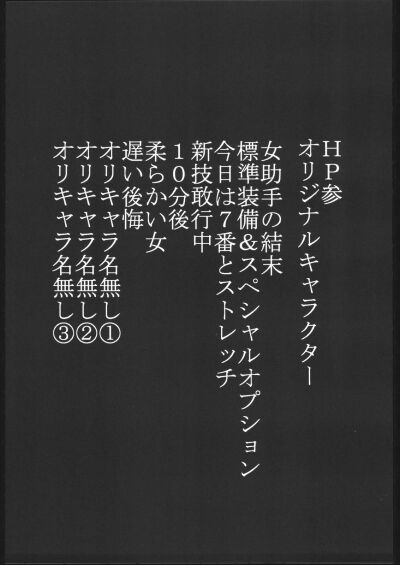 HP参
オリジナルキャラクター
女助手の結末
標準装備&スペシャルオプション
今日は7番とストレッチ
新技敢行中
10分後
柔らかい女
遅い後悔
オリキャラ名無し①
オリキャラ名無し②
オリキャラ名無し③